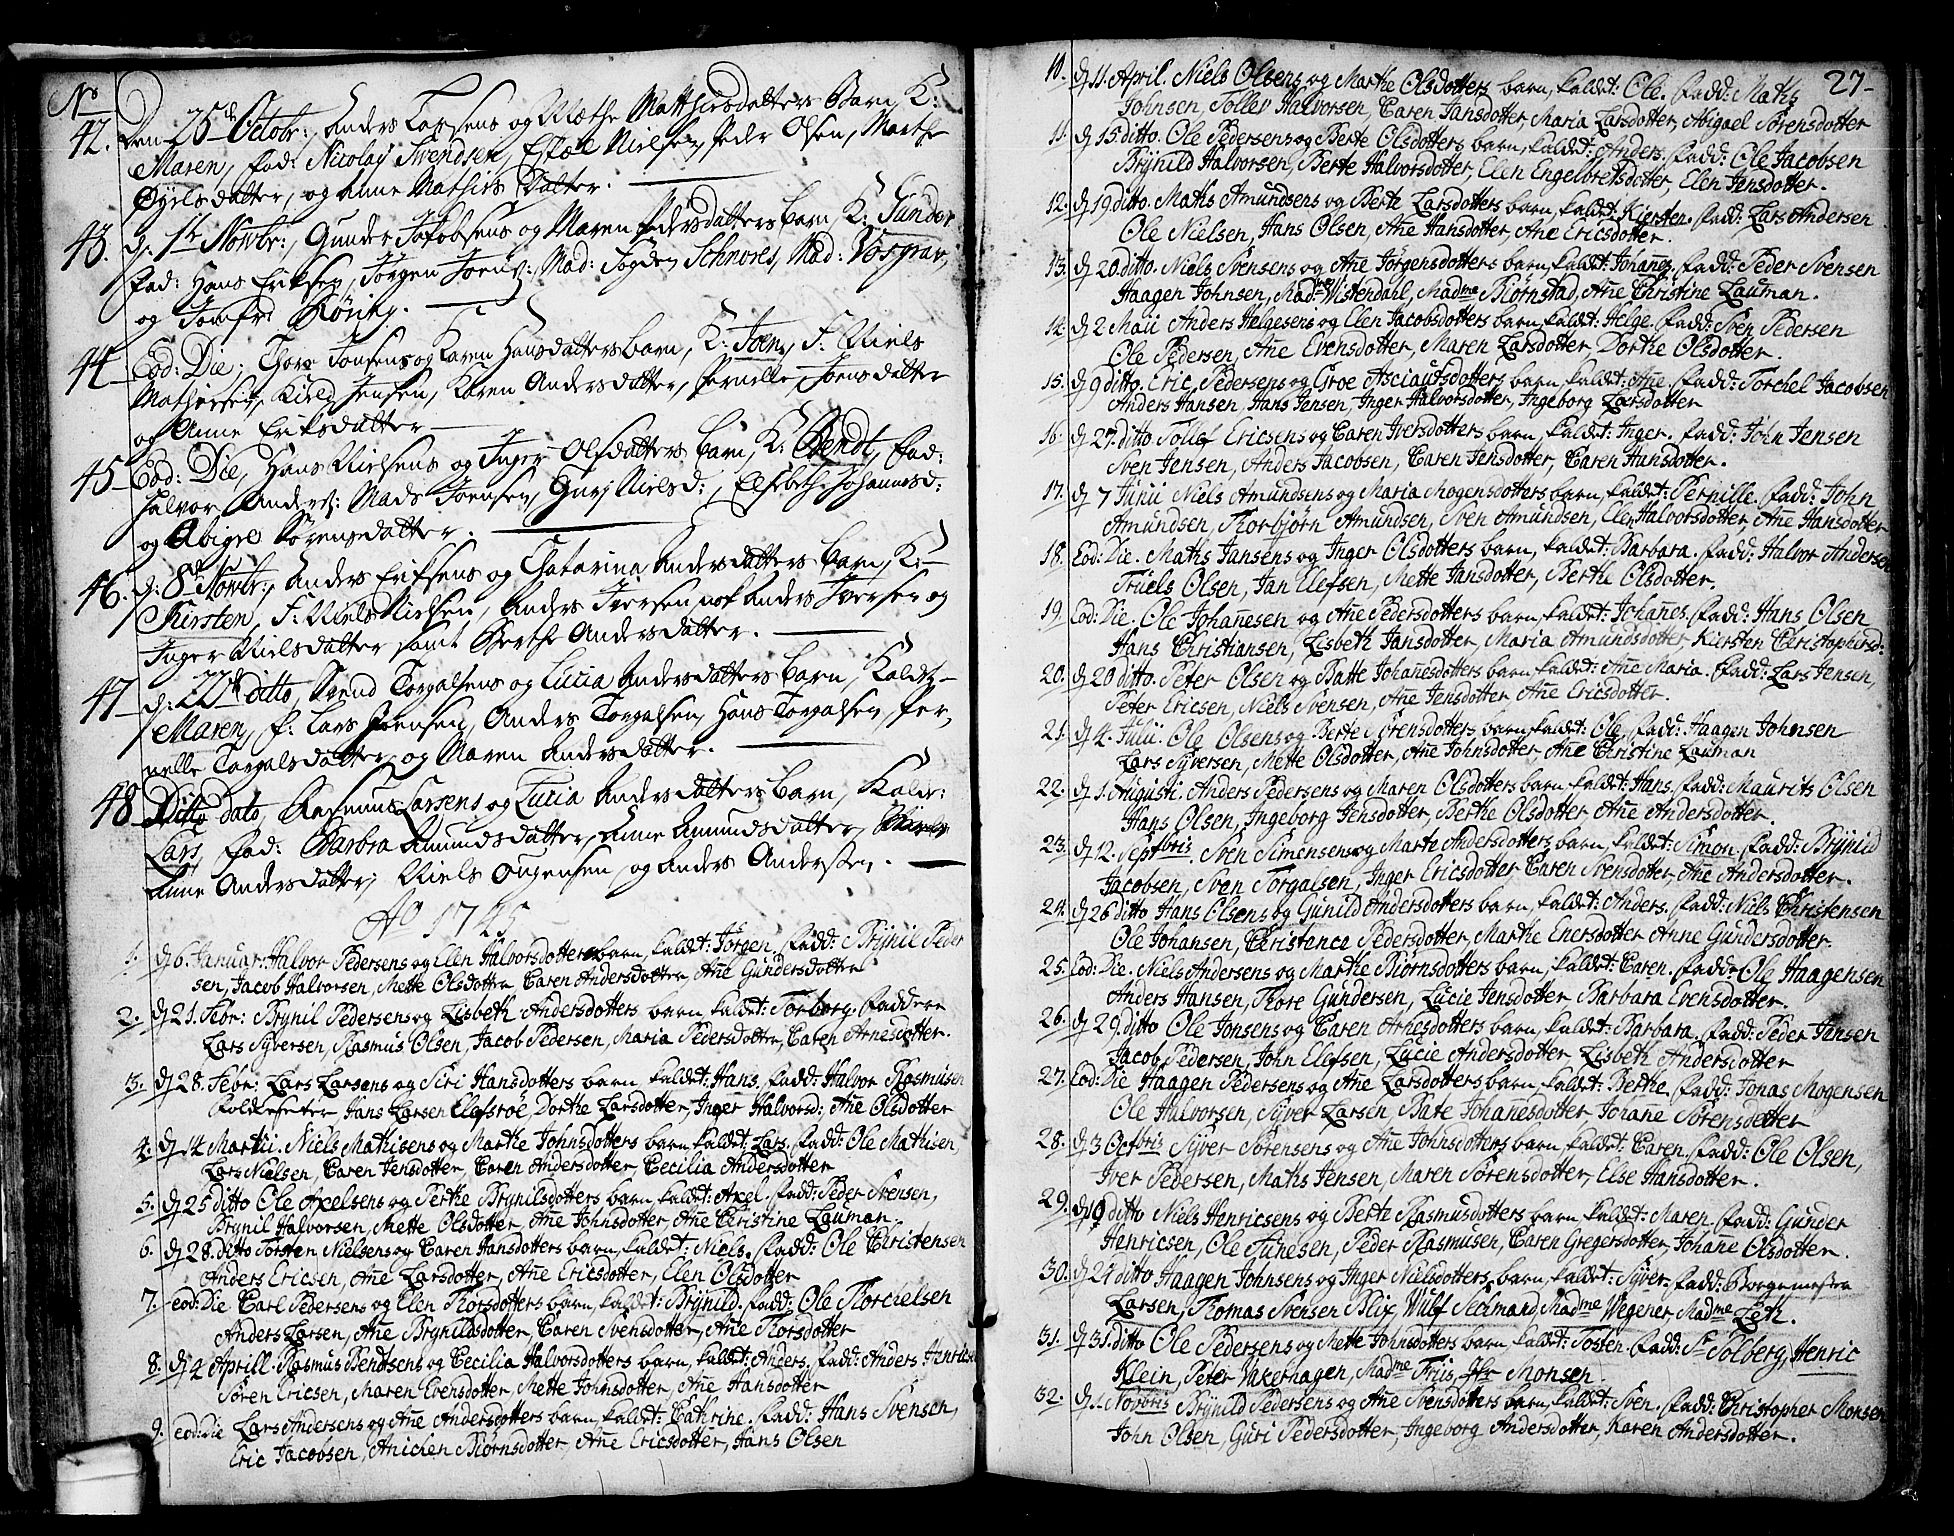 No
42. Den 25de Octobr:, Anders Larsens og Mæthe Matthiesdatters Barn, K:
Maren, Fad: Nicolay Svendsen, Nielsen, Peder Olsen, Marthe
datter, og Anne Mathis Datter.
43. d: 1te Novbr:, Gunder Jacobsens og Maren Pedersdatters barn K: Gunder
Fad: Hans Eriksen, Jørgen Mad: Schnores, Mad: Vosgrav,
og Jomfr:
44. Eod: Die; Thore Jonsens og Karen Hansdatters barn, K: Joen, F: Niels
Mathiesen, Kield Jensen, Karen Andersdatter, Pernelle Joensdatter
og Anne Eriksdatter
45. Eod: Die, Hans Nielsens og Inger Olsdatters barn, K: Bendt, Fad:
Halvor Anders: Mads Joensen, Guri Nielsd:, Elsebethe Johannesd:
og Abigel Sørensdatter.
46. d: 8de Novbr:, Anders Eriksens og Chatarina Andersdatters barn, K:
Kirsten, F: Niels Nielsen, Anders Iversen, nok Anders Iversen og
Inger Nielsdatter samt Berthe Andersdatter.
47. d: 22de ditto, Svend Torgalsens og Lucia Andersdatters barn, Kaldt
Maren, F: Lars Joensen, Anders Torgalsen, Hans Torgalsen, Per-
nelle Torgalsdatter og Maren Andersdatter.
48. Ditto dato, Rasmus Larsens og Lucia Andersdatters Barn, Kaldt:
Lars, Fad: Barbra Amundsdatter, Anne Amundsdatter,
Anne Andersdatter, Niels og Anders Andersen.
Ao 1745
1. d 6. Januar: Halvor Pedersens og Elen Halvorsdotters barn, kaldet: Jørgen, Fadd: Brynil Peder
sen, Jacob Halvorsen, Mette Olsdotter, Caren Andersdotter, Ane Gundersdotter.
2. d 21. Febr: Brynil Pedersens og Lisbeth Andersdotters barn, kaldet: Torborg. Faddere
Lars Syversen, Rasmus Olsen, Jacob Pedersen, Maria Pedersdotter, Caren Arnesdotter.
3. d 28. Febr: Lars Larsens og Siri Hansdotters barn, kaldet: Hans, Fadd: Halvor Rasmusen
Hans Larsen Dorthe Larsdotter, Inger Halvorsd: Ane Olsdotter
4. d 14 Martii. Niels Mathisens og Marthe Johnsdotters barn kaldet: Lars. Fadd: Ole Mathisen,
Lars Nielsen, Caren Jensdotter, Caren Andersdotter, Cecilia Andersdotter
5. d 25 ditto Ole Axelsens og Berthe Brynilsdotters barn, kaldet: Axel. Fadd: Peder Svensen,
Brynil Halvorsen, Mette Olsdotter, Ane Johnsdotter, Ane Christine Lauman.
6. d 28. ditto Torsten Nielsens og Caren Hansdotters barn, kaldet: Niels. Fadd: Ole Christensen
Anders Ericsen, Ane Larsdotter, Ane Ericsdotter, Elen Olsdotter
7. eod: Die Carl Pedersens og Elen Thorsdotters barn, kaldet: Brynild. Fadd: Ole Thorchelsen
Anders Larsen, Ane Brynildsdotter, Caren Svensdotter, Ane Thorsdotter
8. d 4 Aprill. Rasmus Bendtsens og Cecilia Halvorsdotters barn, kaldet: Anders. Fadd: Anders Henricsen
Sören Ericsen, Maren Evensdotter, Mette Johnsdotter, Ane Hansdotter
9. eod: Die Lars Andersens og Ane Andersdotters barn, kaldet: Cathrine. Fadd: Hans Svensen,
Eric Jacobsen, Anichen Biørnsdotter, Ane Ericsdotter, Hans Olsen
27-
10. d 11. April. Niels Olsens og Marthe Olsdotters barn, kaldet: Ole. Fadd: Maths
Johnsen, Tollev Halvorsen, Caren Jansdotter, Maria Larsdotter, Abigael Sörensdotter
11. d 15. ditto. Ole Pedersens og Berte Olsdotters barn, kaldet: Anders. Fadd: Ole Jacobsen
Brynild Halvorsen, Berte Halvorsdotter, Elen Engelbretsdotter, Elen Jensdotter.
12. d 19 ditto. Maths Amundsens og Berte Larsdotters barn, kaldet: Kiersten. Fadd: Lars Andersen
Ole Nielsen, Hans Olsen, Ane Hansdotter, Ane Ericsdotter.
13. d 20. ditto. Niels Svensens og Ane Jörgensdotters barn, kaldet: Johanes. Fadd: Peder Svensen
Haagen Johnsen, Madme Wistendahl, Madme Biørnstad, Ane Christine Lauman.
14. d 2 Maii Anders Helgesens og Elen Jacobsdotters barn, kaldet: Helge. Fadd: Sven Pedersen
Ole Pedersen, Ane Evensdotter, Maren Larsdotter Dorthe Olsdotter.
15. d 9 ditto. Eric Pedersens og Groe Asciaufsdotters barn, kaldet: Ane. Fadd: Torchel Jacobsen
Anders Hansen, Hans Jensen, Inger Halvorsdotter, Ingeborg Larsdotter
16. d 27. ditto Tollef Ericsens og Caren Iversdotters barn, kaldet: Inger. Fadd: John Jensen
Sven Jensen, Anders Jacobsen, Caren Jensdotter, Caren Hansdotter.
17. d 7 Junii Niels Amundsens og Maria Mogensdotters barn, kaldet: Pernille. Fadd: John
Amundsen, Thorbjörn Amundsen, Sven Amundsen, Elen Halvorsdotter, Ane Hansdotter
18. Eod: Die. Maths Jansens og Inger Olsdotters barn, kaldet: Barbara. Fadd: Halvor Andersen
Truels Olsen, Jan Elefsen, Mette Jansdotter, Berthe Olsdotter.
19. Eod: Die. Ole Johanesen og Ane Pedersdotters barn, kaldet: Johanes. Fadd: Hans Olsen
Hans Christiansen, Lisbeth Jansdotter, Maria Amundsdotter, Kirsten Christophersd:
20. d 20 ditto. Peter Olsen og Batte Johanesdotters barn, kaldet: Ane Maria. Fadd: Lars Jensen,
Peter Ericsen, Niels Svensen, Ane Jensdotter, Ane Ericsdotter.
21. d 4. Julii. Ole Olsens og Berte Sörensdotters barn, kaldet: Ole, Fadd: Haagen Johnsen
Lars Syversen, Mette Olsdotter, Ane Johnsdotter, Ane Christine Lauman
22. d 1. Augusti. Anders Pedersens og Maren Olsdotters barn, kaldet: Hans. Fadd: Maurits Olsen
Hans Olsen, Ingeborg Jensdotter, Berthe Olsdotter, Ane Andersdotter.
23. d 12. Septbris. Sven Simensens og Marte Andersdotters barn, kaldet: Simon. Fadd: Brynild
Jacobsen, Sven Torgalsen, Inger Ericsdotter, Caren Svensdotter, Ane Andersdotter.
24. d 26 ditto Hans Olsens og Gunild Andersdotters barn, kaldet: Anders. Fadd: Niels Christensen
Ole Johansen, Christence Pedersdotter, Marthe Enersdotter Anne Gundersdotter.
25. Eod: Die. Niels Andersens og Marthe Biørnsdotters barn, kaldet: Caren. Fadd: Ole Haagensen
Anders Hansen, Thore Gundersen, Lucie Jensdotter Barbara Evensdotter.
26. d 29. ditto Ole Jonsens og Caren Arnesdotters barn, kaldet: Barbara, Fadd: Peder Jensen
Jacob Pedersen, John Elefsen, Lucie Andersdotter Lisbeth Andersdotter
27. Eod: Die Haagen Pedersens og Ane Larsdotters barn, kaldet: Berthe. Fadd: Jonas Mogensen
Ole Halvorsen, Syver Larsen Bate Johanesdotter Johane Sörensdotter
28. d 3 Octbris Syver Sörensens og Ane Johnsdotters barn, kaldet: Caren. Fadd: Ole Olsen,
Iver Pedersen, Maths Jensen, Maren Sörensdotter, Else Hansdotter.
29. d ditto Niels Henricsens og Berte Rasmusdotters barn, kaldet: Maren. Fadd: Gunder
Henricsen, Ole Tunesen, Peder Rasmusen, Caren Gregersdotter, Johane Olsdotter.
30. d 24 ditto Haagen Johnsens og Inger Nielsdotters barn, kaldet: Syver, Fadd: Borgemester
Larsen, Thomas Svensen Blix, Wulf Seelmand, Madme Wegener, Madme Leth.
31. d 31. ditto Ole Pedersens og Mette Johnsdotters barn, kaldet: Tosten. Fadd: Sr Solberg, Henric
Klein, Peter Vakerhagen, Madme Friis, Jfr Monsen.
32. d. 1. Novbris Brynild Pedersens og Ane Svensdotters barn, kaldet: Sven. Fadd: Christopher Monsen
John Olsen, Guri Pedersdotter, Ingeborg Andersdotter, Karen Andersdotter.